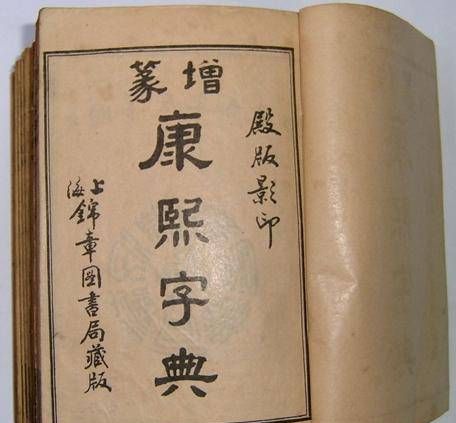 殿版影印
增篆
康熙字典
上海錦章圖書局藏版